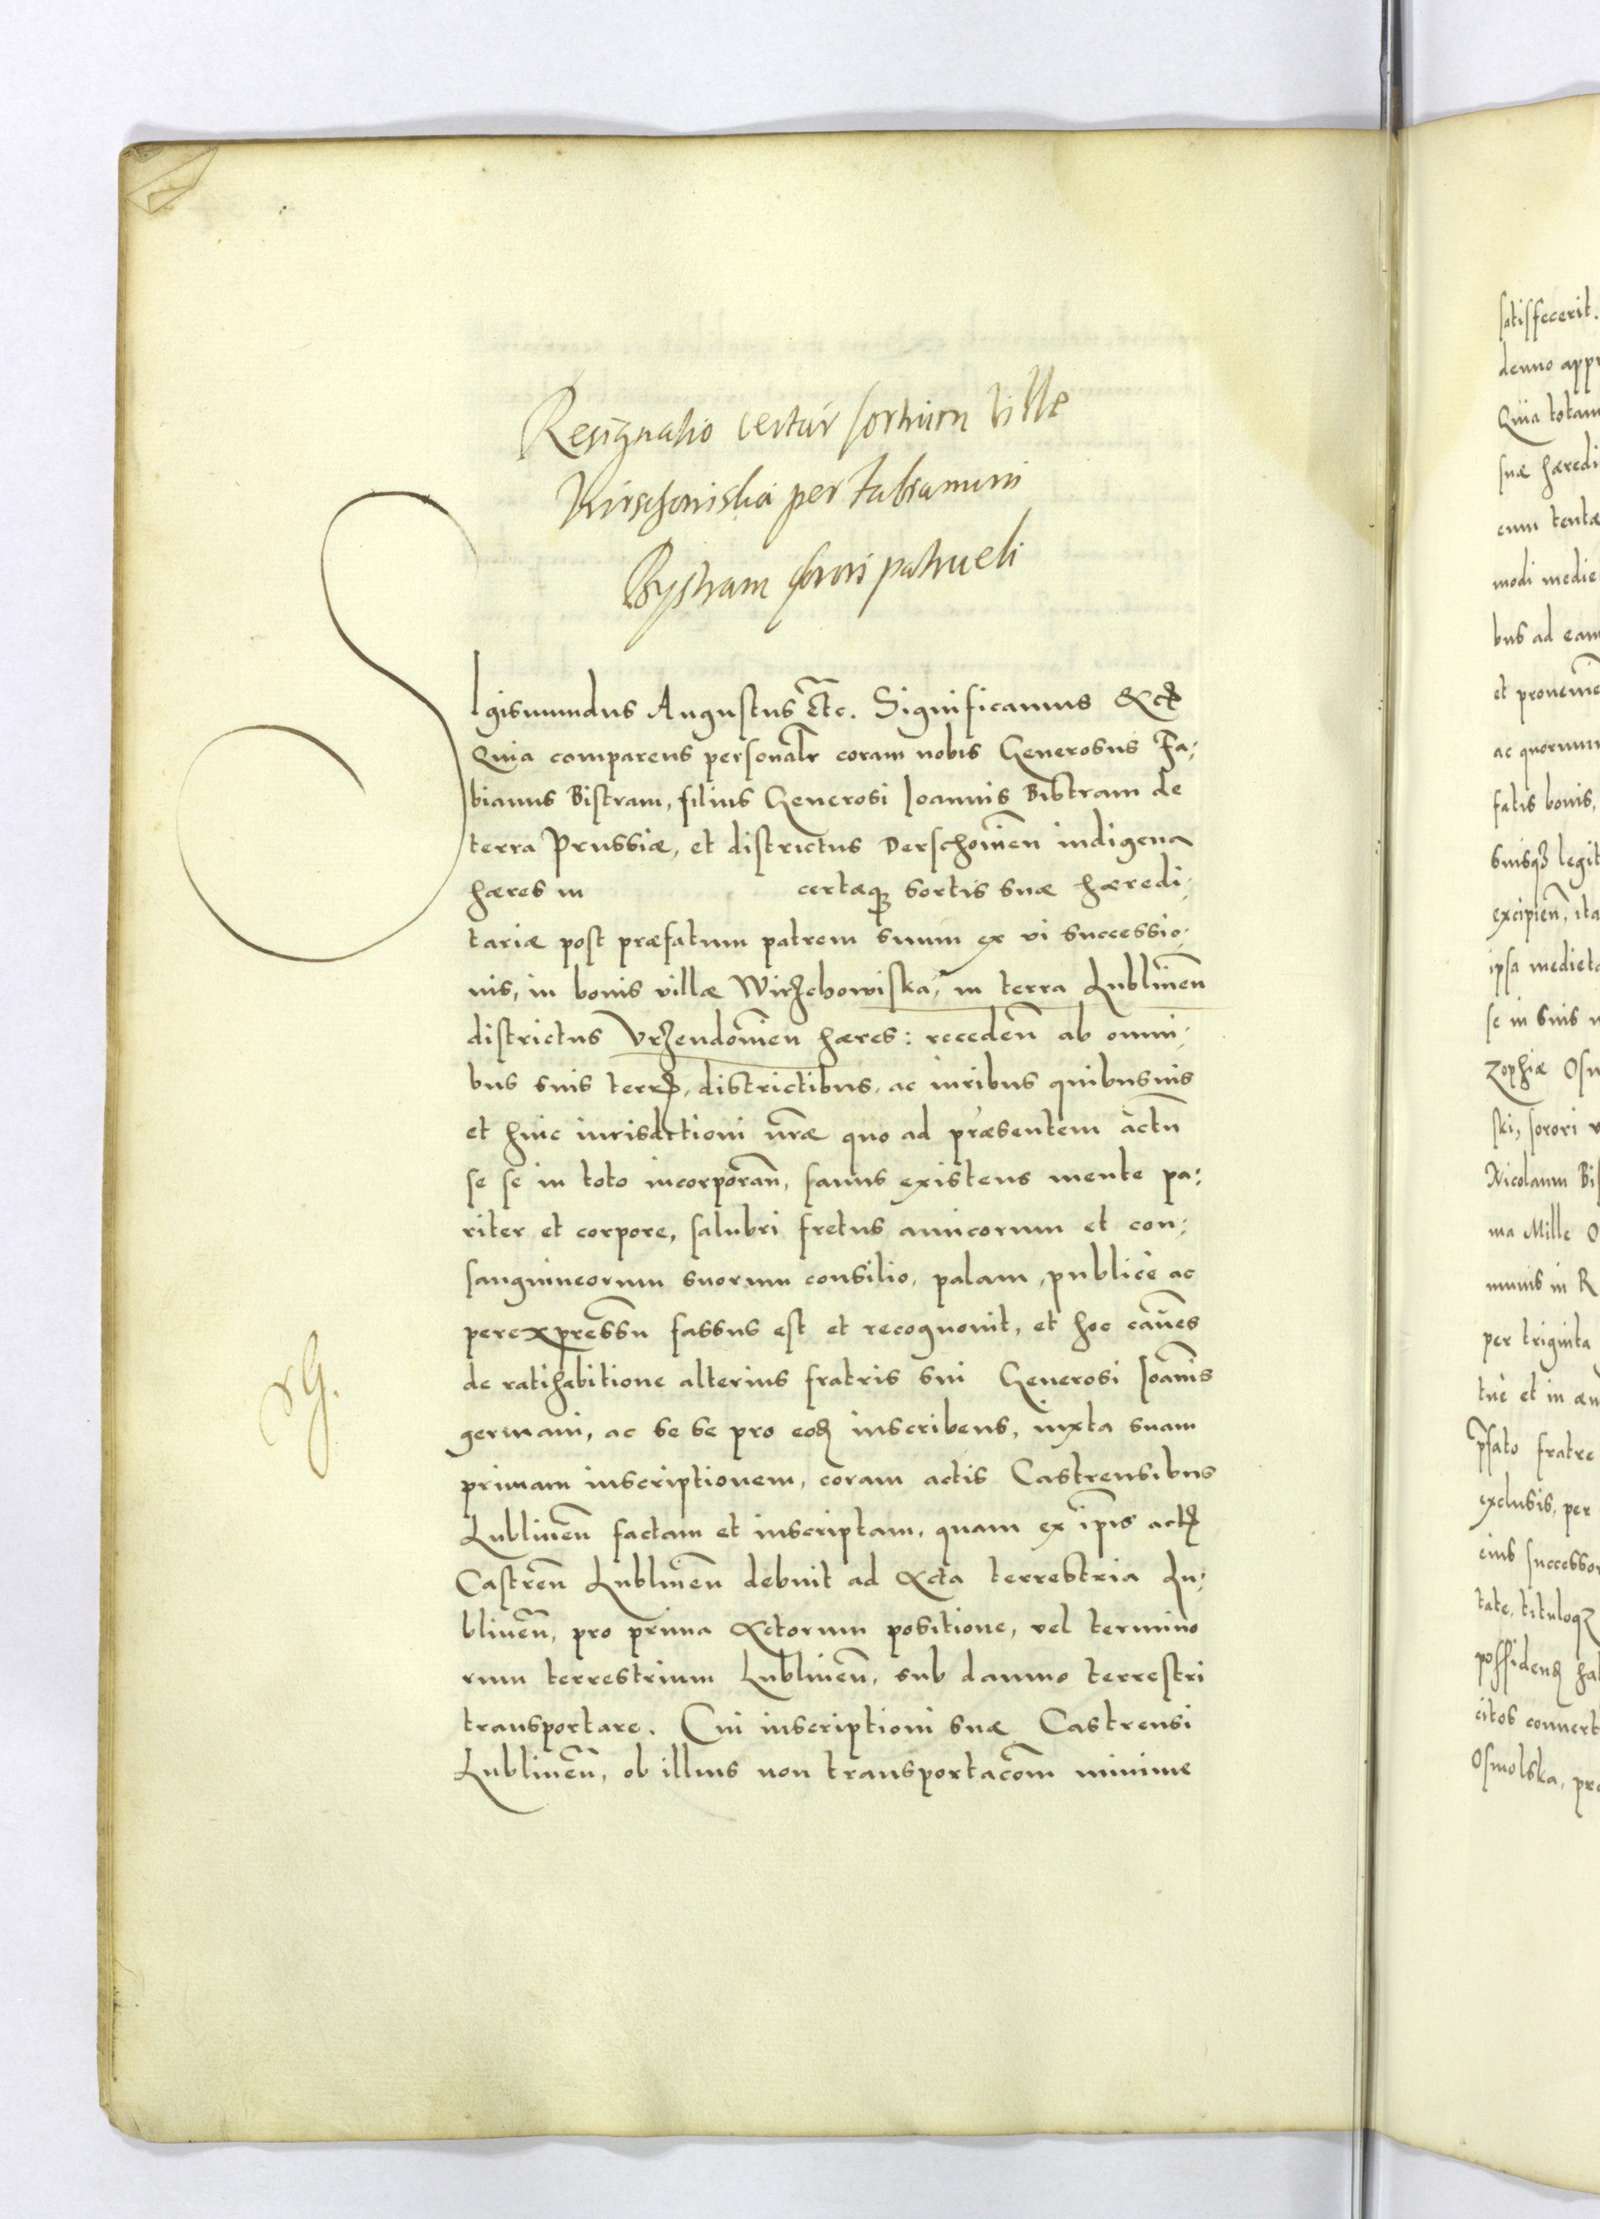 Resignatio certar sortium Ville
Wirschoviska per Fabianum
Bystram sorori patrueli
Sigismundus Augustus etc. Significamus &c
Quia comparens personalr coram nobis Generosus Fa:
bianus Bistram, filius Generosi Ioannis Bistram de
terra Prussiæ, et districtus Derschovien indigena
hæres in certæq sortis suæ hæredi:
tariæ post præfatum patrem suum ex vi successio:
nis, in bonis villæ Wirzchowiska, in terra Lublinen
districtus Vrzendovien hæres: receden ab omni:
bus suis terr, districtibus, ac iuribus quibusuis
et huic iurisdictioni nræ quo ad præsentem actu
se se in toto incorporan, sanus existens mente pa:
riter et corpore, salubri fretus amicorum et con:
sanguineorum suorum consilio, palam, publicè ac
perexpressu fassus est et recognouit, et hoc caues
de ratihabitione alterius fratris sui Generosi Ioanis
germani, ac se se pro eod inscribens, iuxta suam
primam inscriptionem, coram actis Castrensibus
Lublinen factam et inscriptam, quam ex ipis act
Castren Lublinen debuit ad Acta terrestria Lu:
blinen, pro prima Actorum positione, vel termino
rum terrestrium Lublinen, sub damno terrestri
transportare. Cui inscriptioni suæ Castrensi
Lublinen, ob illius non transportacom minime
satisfecerit.
denuo
Quia totam
suæ hæredi
cum
modi
bus ad eam
et
ac quorum
fatis bonis,
suisqz legit
excipien, ita
ipsa medieta
se in suis
Zophiæ
ski, sorori
Nicolaum
ma Mille
munis in R
per triginta
tuè et in
psato fratre
exclusis, per
eius successor
tate, tituloqz
possidend
citos conuert
Osmolska,